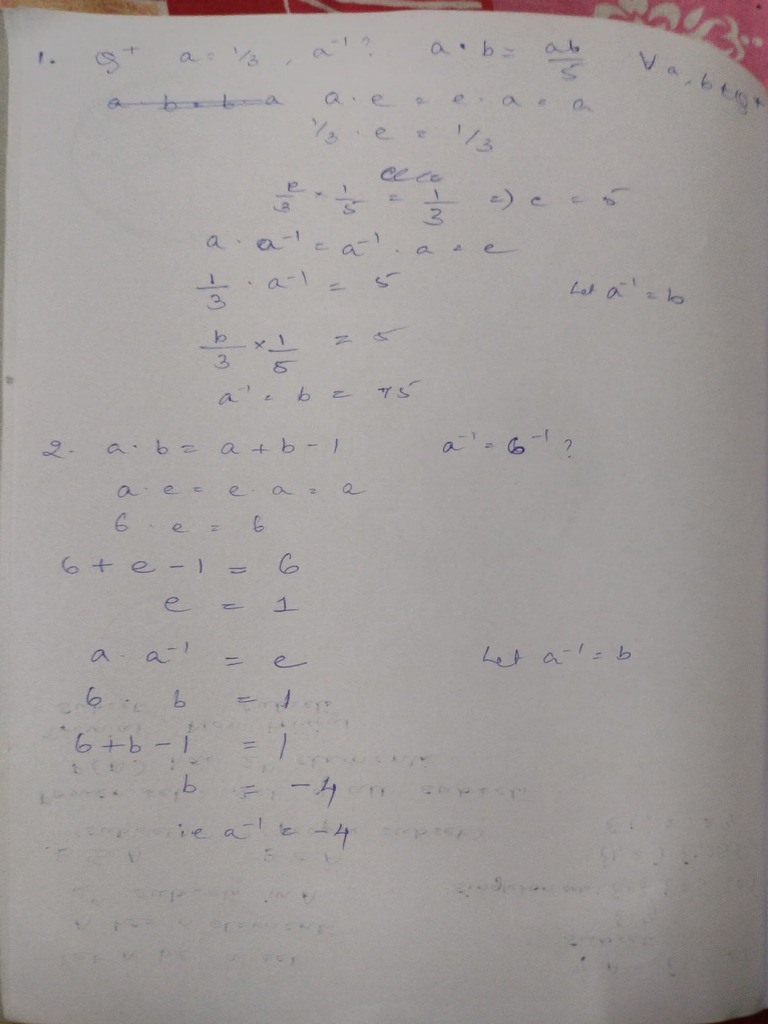 1. Q⁺ a = 1/3, a⁻¹? a · b = ab/5 ∀ a, b ∈ Q⁺
a · b = b · a a · e = e · a = a
1/3 · e = 1/3
e/3 × 1/5 = 1/3 => e = 5
a · a⁻¹ = a⁻¹ · a = e
1/3 · a⁻¹ = 5 Let a⁻¹ = b
b/3 × 1/5 = 5
a⁻¹ = b = 75
2. a · b = a + b - 1 a⁻¹ = 6⁻¹?
a · e = e · a = a
6 · e = 6
6 + e - 1 = 6
e = 1
a · a⁻¹ = e Let a⁻¹ = b
6 · b = 1
6 + b - 1 = 1
b = -4
ie a⁻¹ = -4